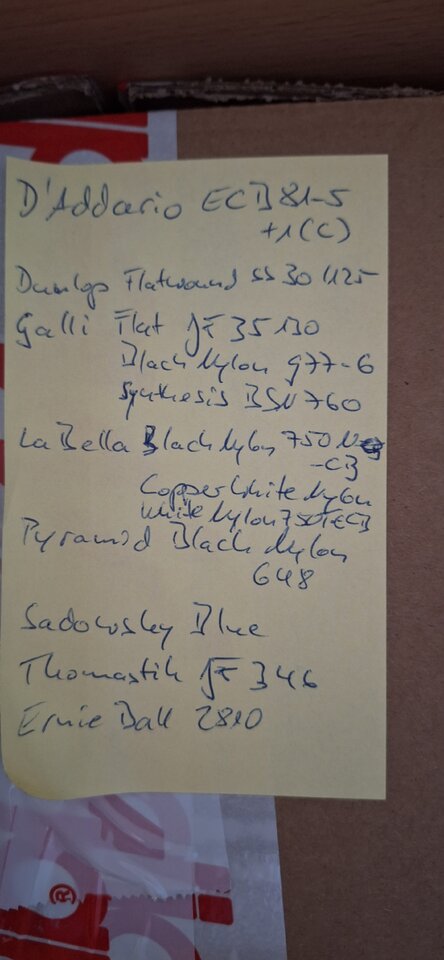 D'Addario ECB81-5
+1(C)
Dunlop Flatwound SS 30 1125
Galli Flat JF 35130
Black Nylon 977-6
Synthesis BSN 760
La Bella Black Nylon 750 N
-CB
Copper White Nylon
White Nylon 750T-CB
Pyramid Black Nylon
648
Sadowsky Blue
Thomastik JF 346
Ernie Ball 2810
®